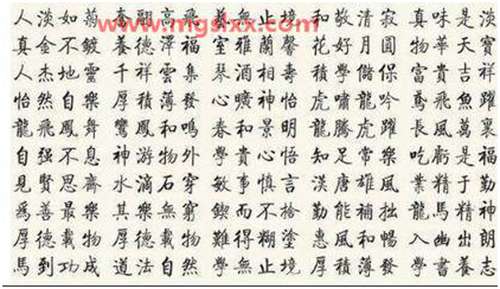 www.mgslxx.com
人淡如菊 高飛 無止境 和敬清寂 真味是淡
真金不鍍 養德澤福 室雅蘭馨 花好月圓 物華天寶
人杰地靈 千祥雲集 琴酒相壽 積學儲 富貴吉祥
怡然自樂 厚積薄發 心曠神怡 虎嘯龍吟 鳶飛魚躍
龍飛鳳舞 鸞鳳和鳴 春和景明 龍騰虎躍 長風萬裏
自强不息 神游物外 學貴心悟 知足常樂 吃虧是福
見賢思齊 水滴石穿 敏事慎言 漢唐雄風 業精于勤
爲善最樂 其樂無窮 鍥而不捨 勤能補拙 龍馬精神
厚德載物 厚德載物 難得糊塗 惠風和暢 入幽出朗
馬到功成 道法自然 學無止境 厚積薄發 學書養志